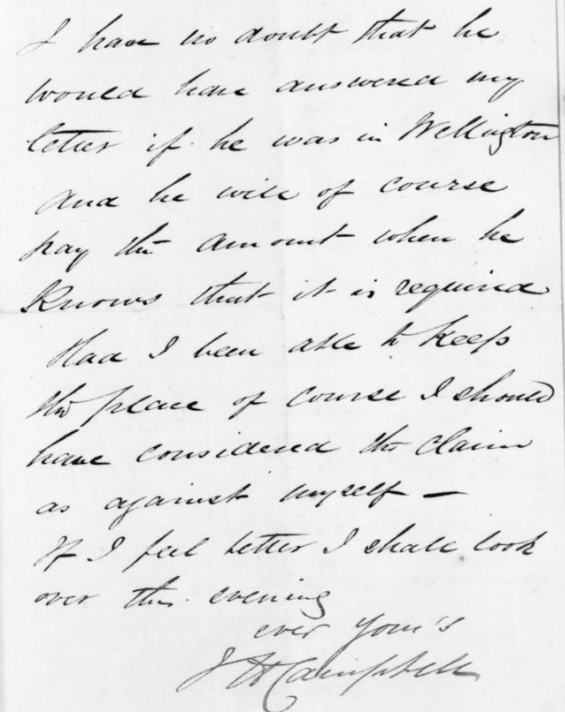 I have no doubt that he
would have answered my
letter if he was in Wellington
and he will of course
pay the amount when he
knows that it is required
Had I been able to keep
the place of course I should
have considered the claim
as against myself —
If I feel better I shall look
over this evening
ever your's
J H Campbell